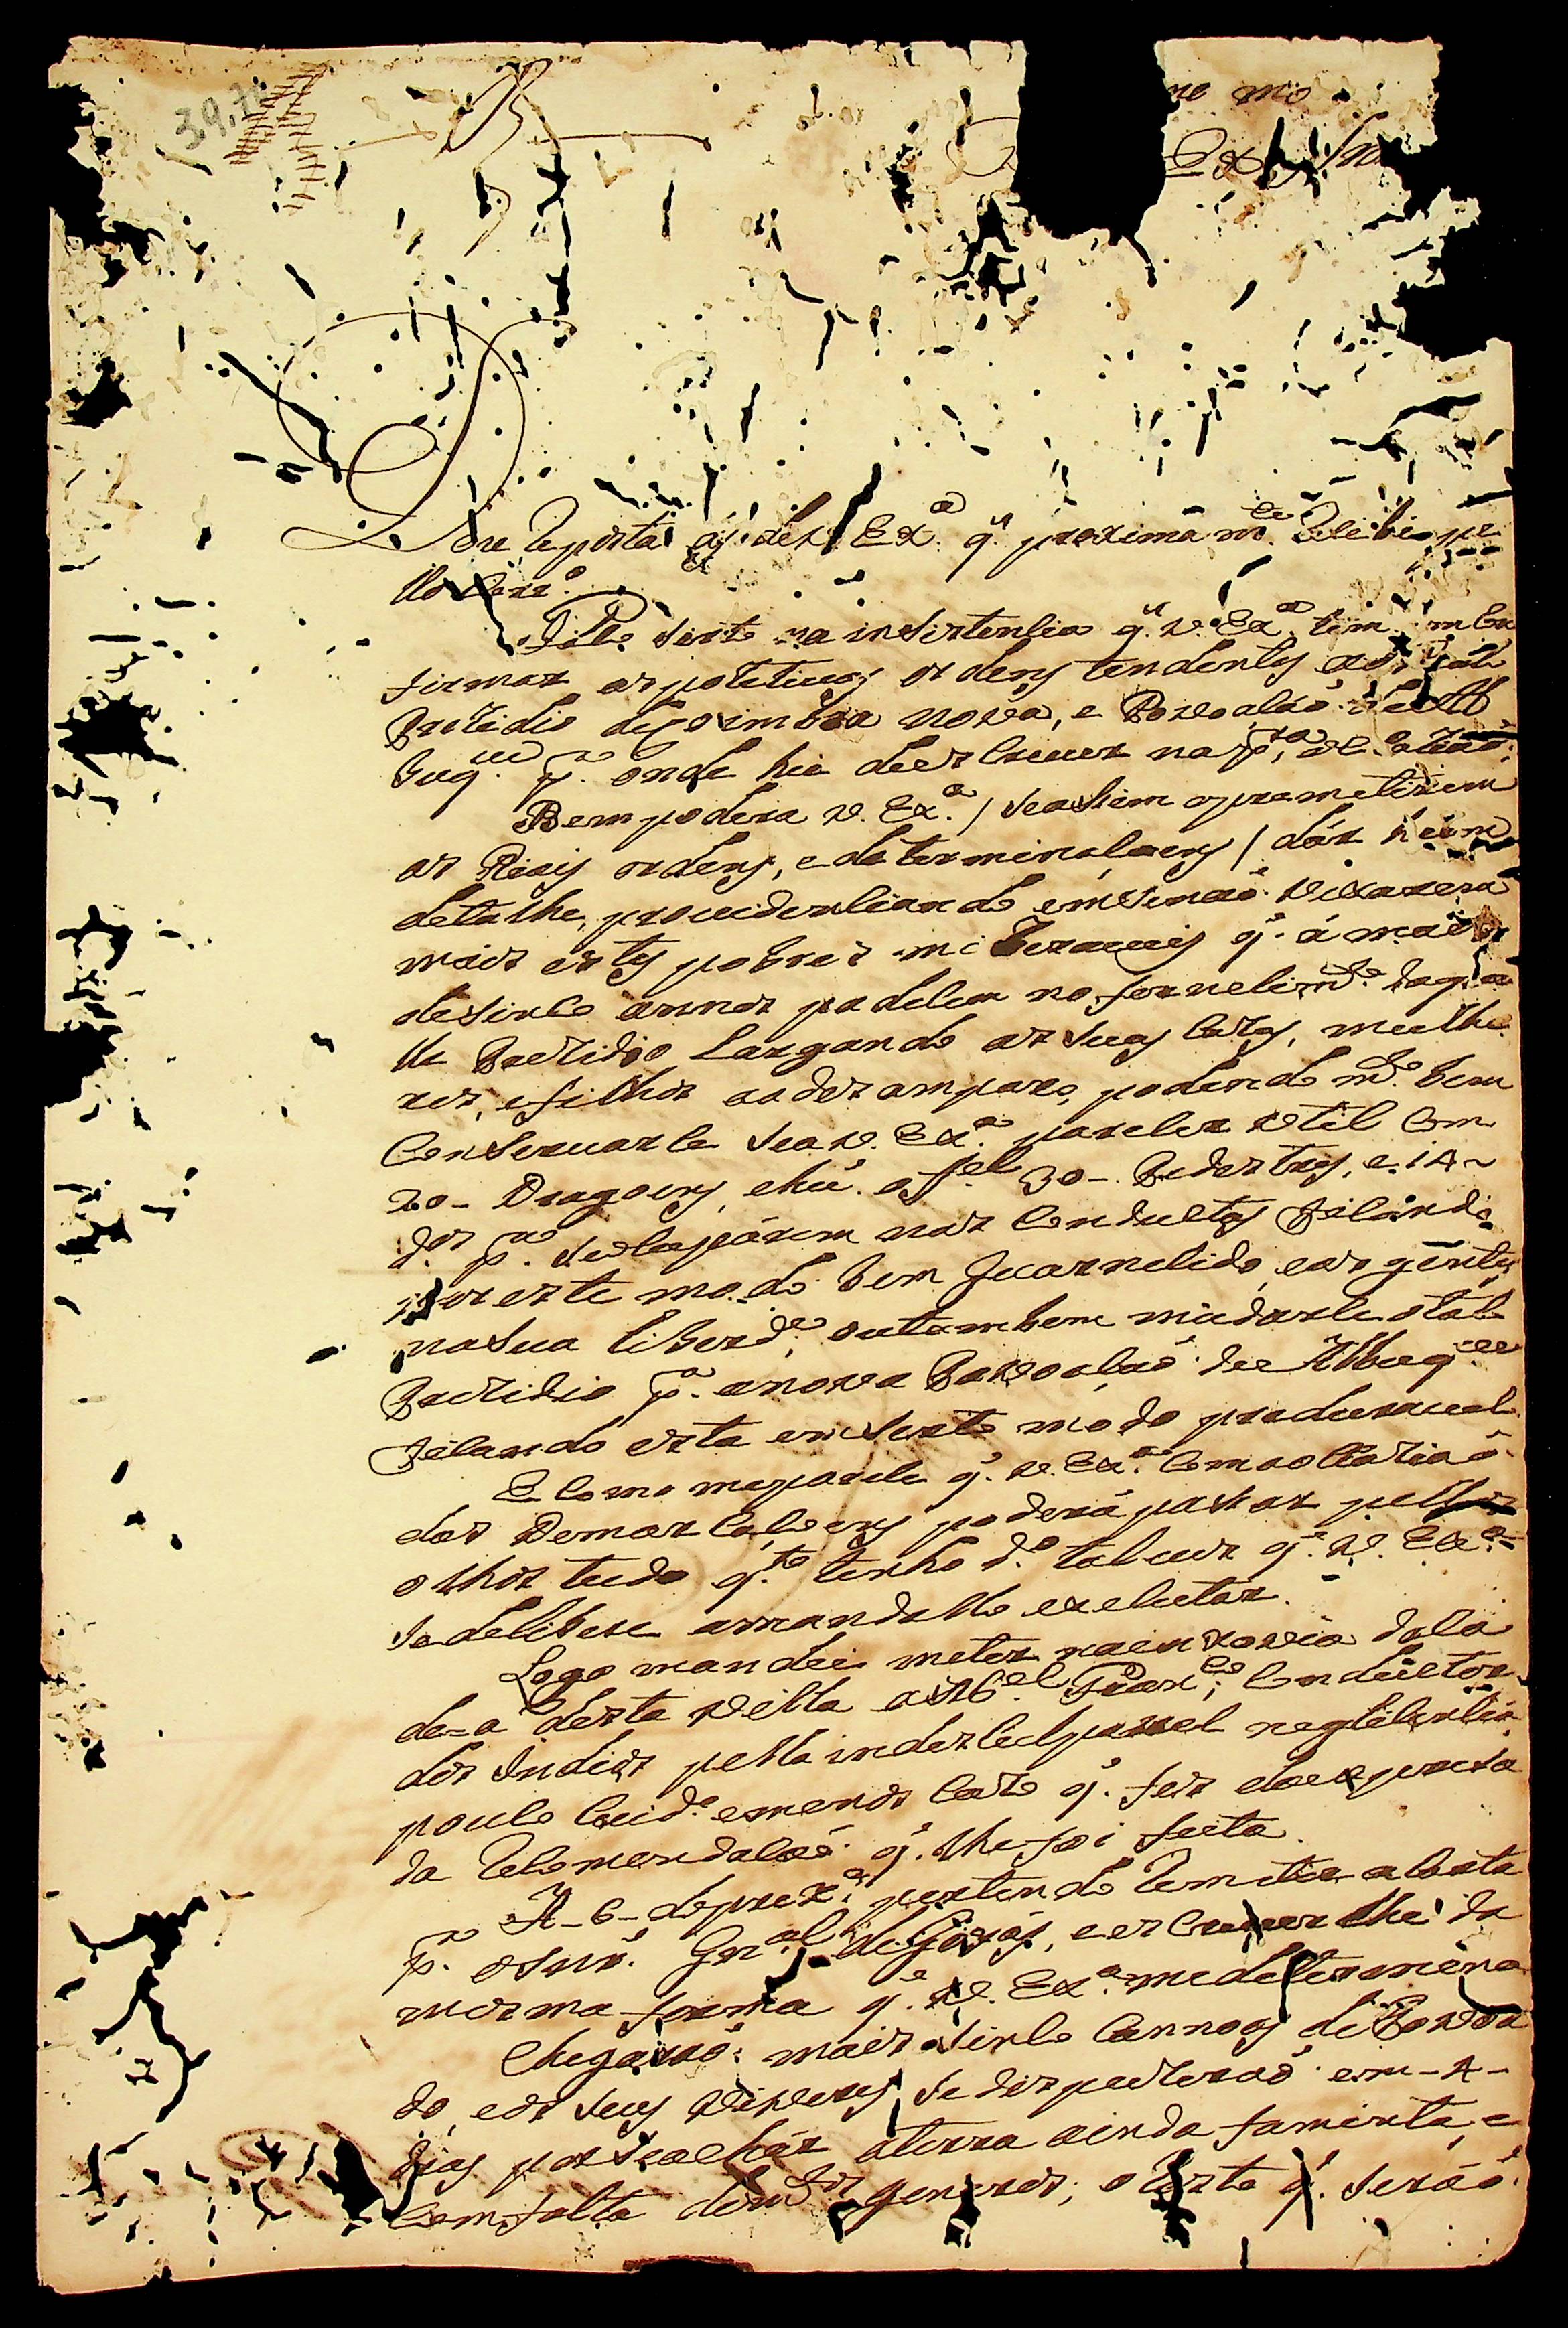 39,7
Ill.mo
Ex.mo Snr
Dou reposta ás de V. Ex.a q. proximam.te recebi pe
llo Corr.o
Fico serto na insistencia q. V. Ex.a tem em Con
firmar as potetivas ordens tendentes ao
Prezidio de Coimbra nova, e Povoação de Al
buq.ue p.a onde hia descrever na p.ra occazião.
Bem podera V. Ex.a / se assim o prometirem
as Riais ordens, e determinaçoens / dár hum
detalhe, providenciando em Senaõ vexarem
mais estes pobres miseraveis q. á mais
de sinco annos padecem no fornecim.to daque
lle Prezidio Largando as suas Cazas, mulhe
res, e filhos ao dezamparo, podendo m.to bem
Conservarce se a V. Ex.a parecer util Com
20- Dragoens, e hú. of.el 30- Pedestres, e 14-
d.os p.a se ocuparem nas Conductas ficando
por este modo bem guarnecido, e as gentes
na sua liberd.e, ou tambem mudarce o tal
Prezidio p.a a nova Povoação de Albuq.ue
ficando esta em serto modo produravel
E Como me parece q. V. Ex.a Com a occazião
das Demarcaçoens poderá passar pellos
olhos tudo q.to tenho d.o talvez q. V. Ex.a
se delibere a mandallo executar.
Logo mandei meter na enxovia da Ca
dea desta Villa a M.el Franc.o, Conductor
dos Indios pella indesculpavel negligencia
pouco Cuid.o e menos Cazo q. fez da expressa
da recomendação q. lhe foi feita.
A-6-do prez.e pertendo remeter a Carta
p.a o Snr. Gn.al de Goyas, e escrever lhe da
mesma forma q. V. Ex.a me determina
Chegarão mais sinco Cannoas de Povoa
do, e os seus viveres se dispuzeraõ em-4-
dias por se achár a terra ainda faminta, e
Com falta de m.tos generos; o Certo q. seraõ